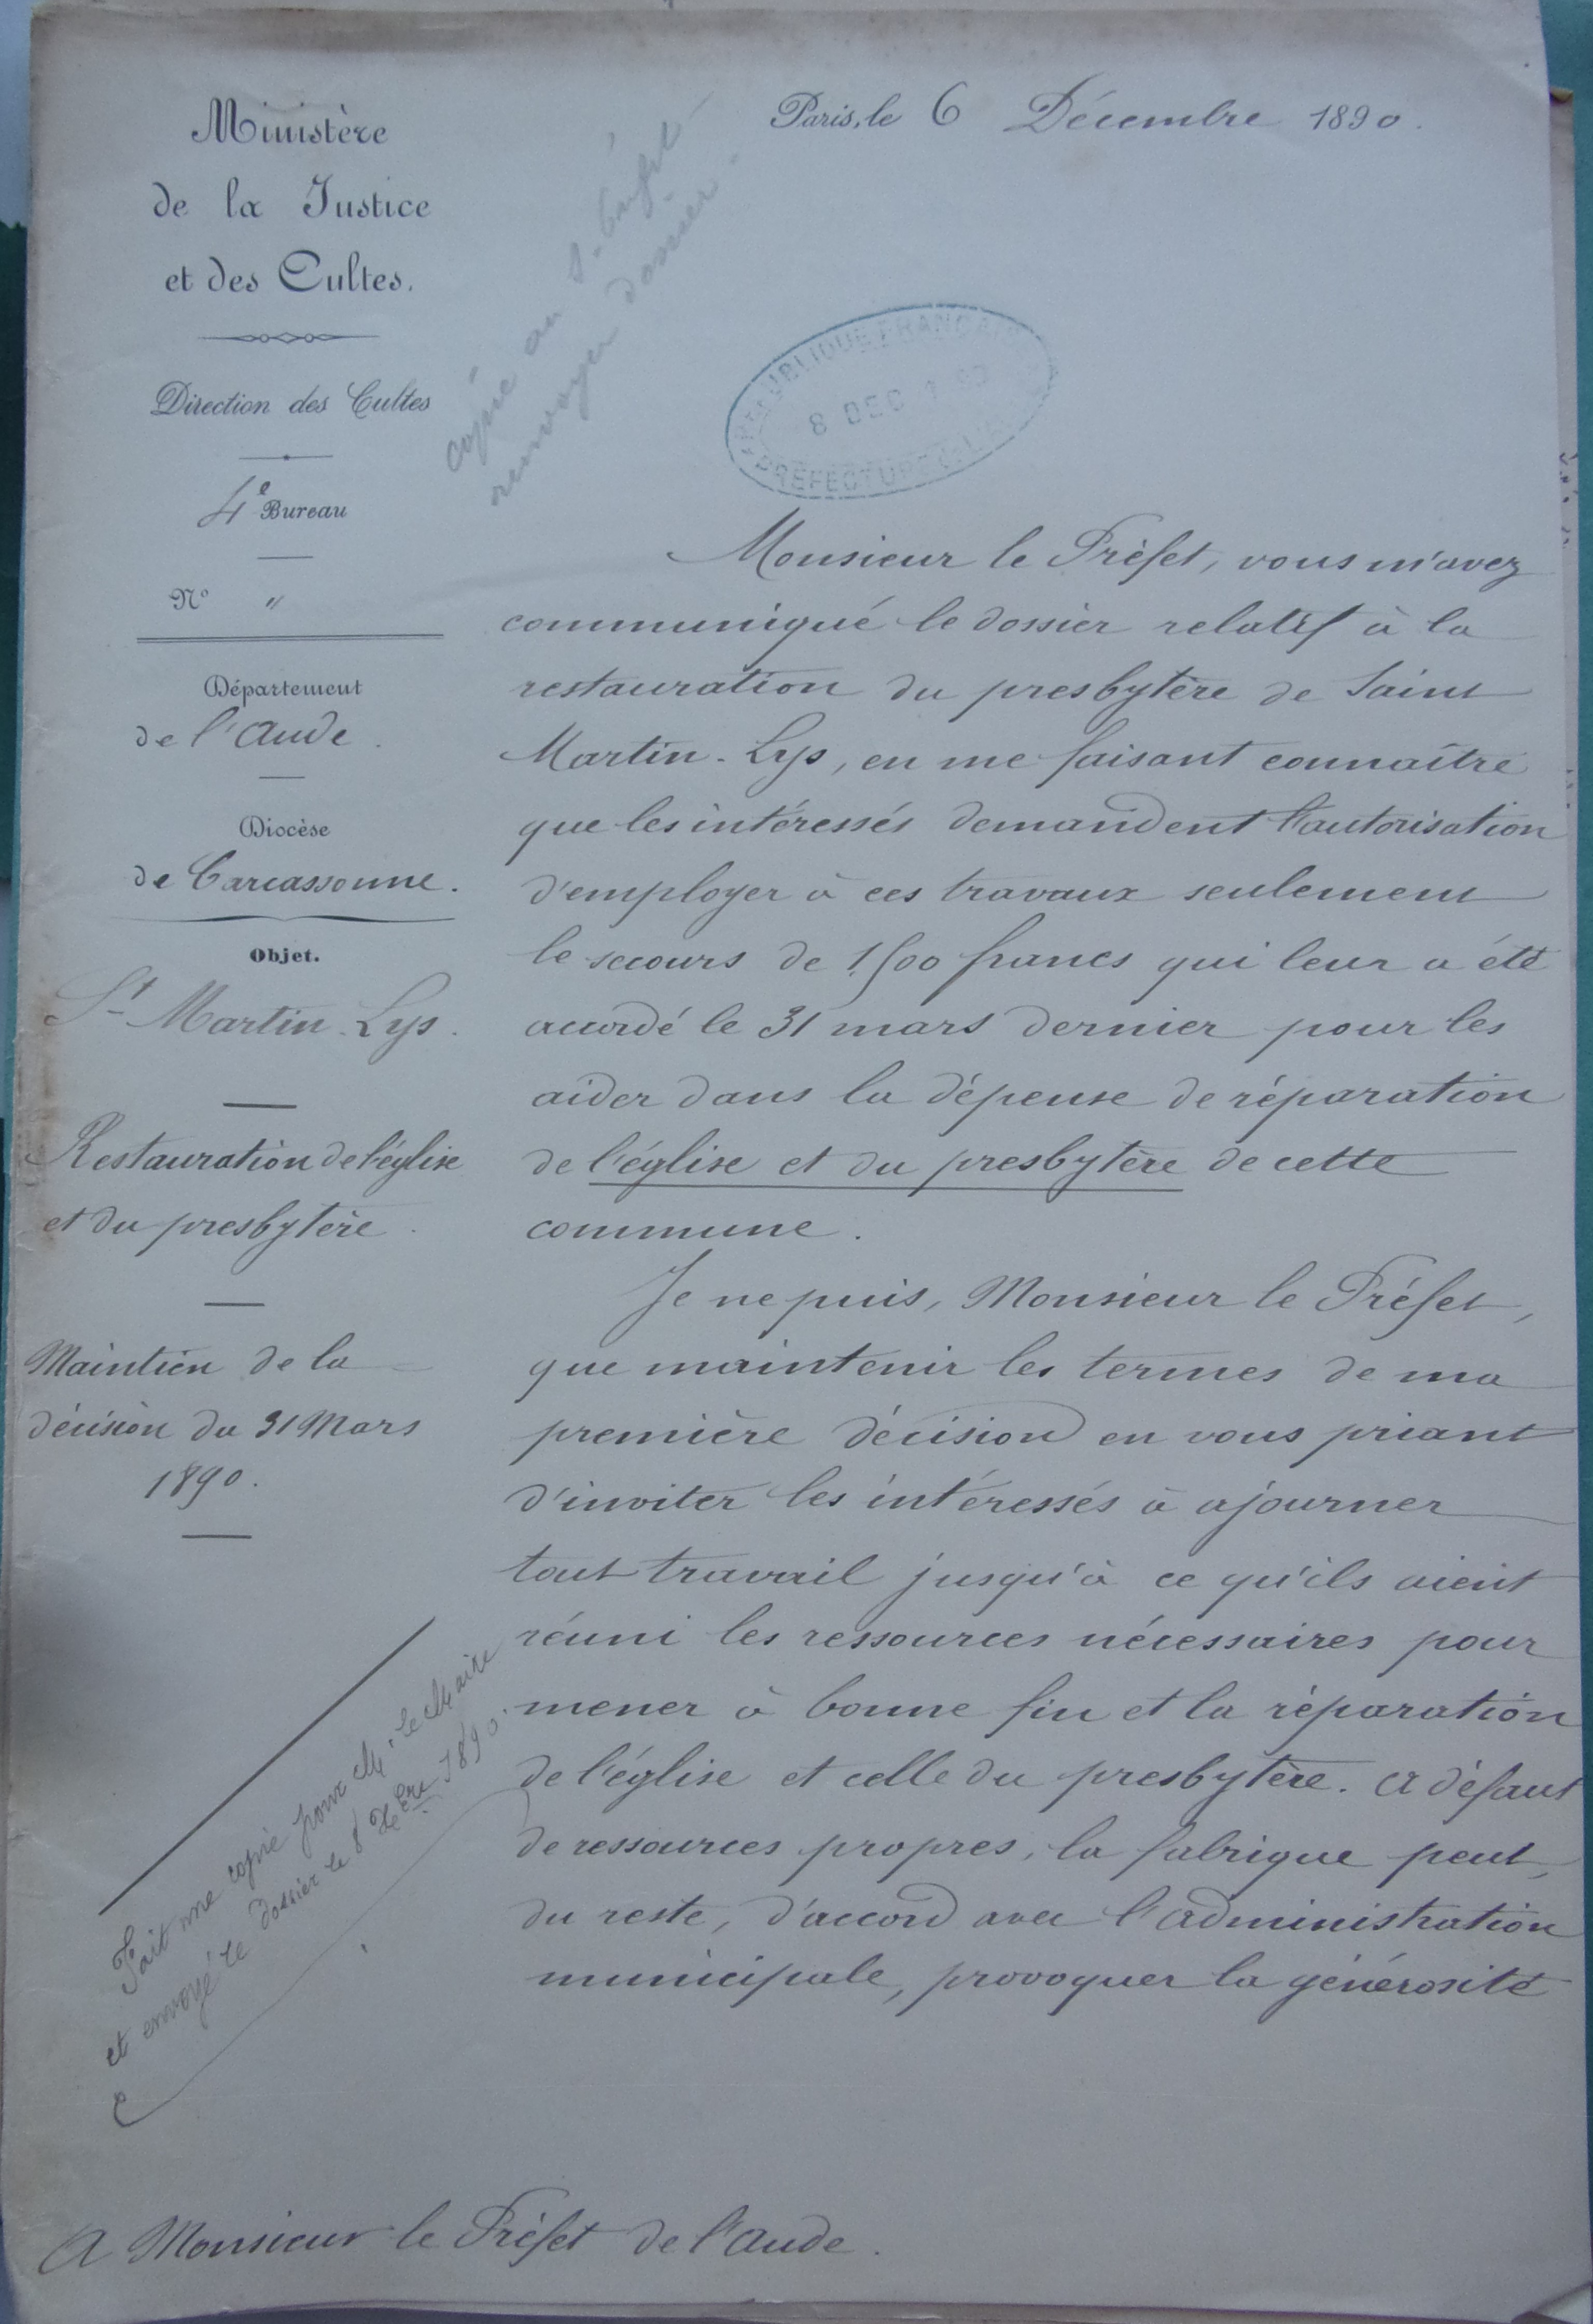 Ministère
de la Justice
et des Cultes.
Direction des Cultes
4e Bureau
No "
Département
de l'Aude.
Diocèse
de Carcassonne.
Objet.
St Martin-Lys.
Restauration de l'église
et du presbytère.
Maintien de la
décision du 31 Mars
1890.
Fait une copie pour M. le Maire
et envoyé le dossier le 8 Xbre 1890.
Paris, le 6 Décembre 1890.
copie au S-Préfet
renvoyer dossier.
RÉPUBLIQUE FRANÇAISE
8 DEC 1890
PRÉFECTURE DE L'AUDE
Monsieur le Préfet, vous m'avez
communiqué le dossier relatif à la
restauration du presbytère de Saint
Martin-Lys, en me faisant connaître
que les intéressés demandent l'autorisation
d'employer à ces travaux seulement
le secours de 1,500 francs qui leur a été
accordé le 31 mars dernier pour les
aider dans la dépense de réparation
de l'église et du presbytère de cette
commune.
Je ne puis, Monsieur le Préfet,
que maintenir les termes de ma
première décision en vous priant
d'inviter les intéressés à ajourner
tout travail jusqu'à ce qu'ils aient
réuni les ressources nécessaires pour
mener à bonne fin et la réparation
de l'église et celle du presbytère. A défaut
de ressources propres, la fabrique peut,
du reste, d'accord avec l'administration
municipale, provoquer la générosité
A Monsieur le Préfet de l'Aude.